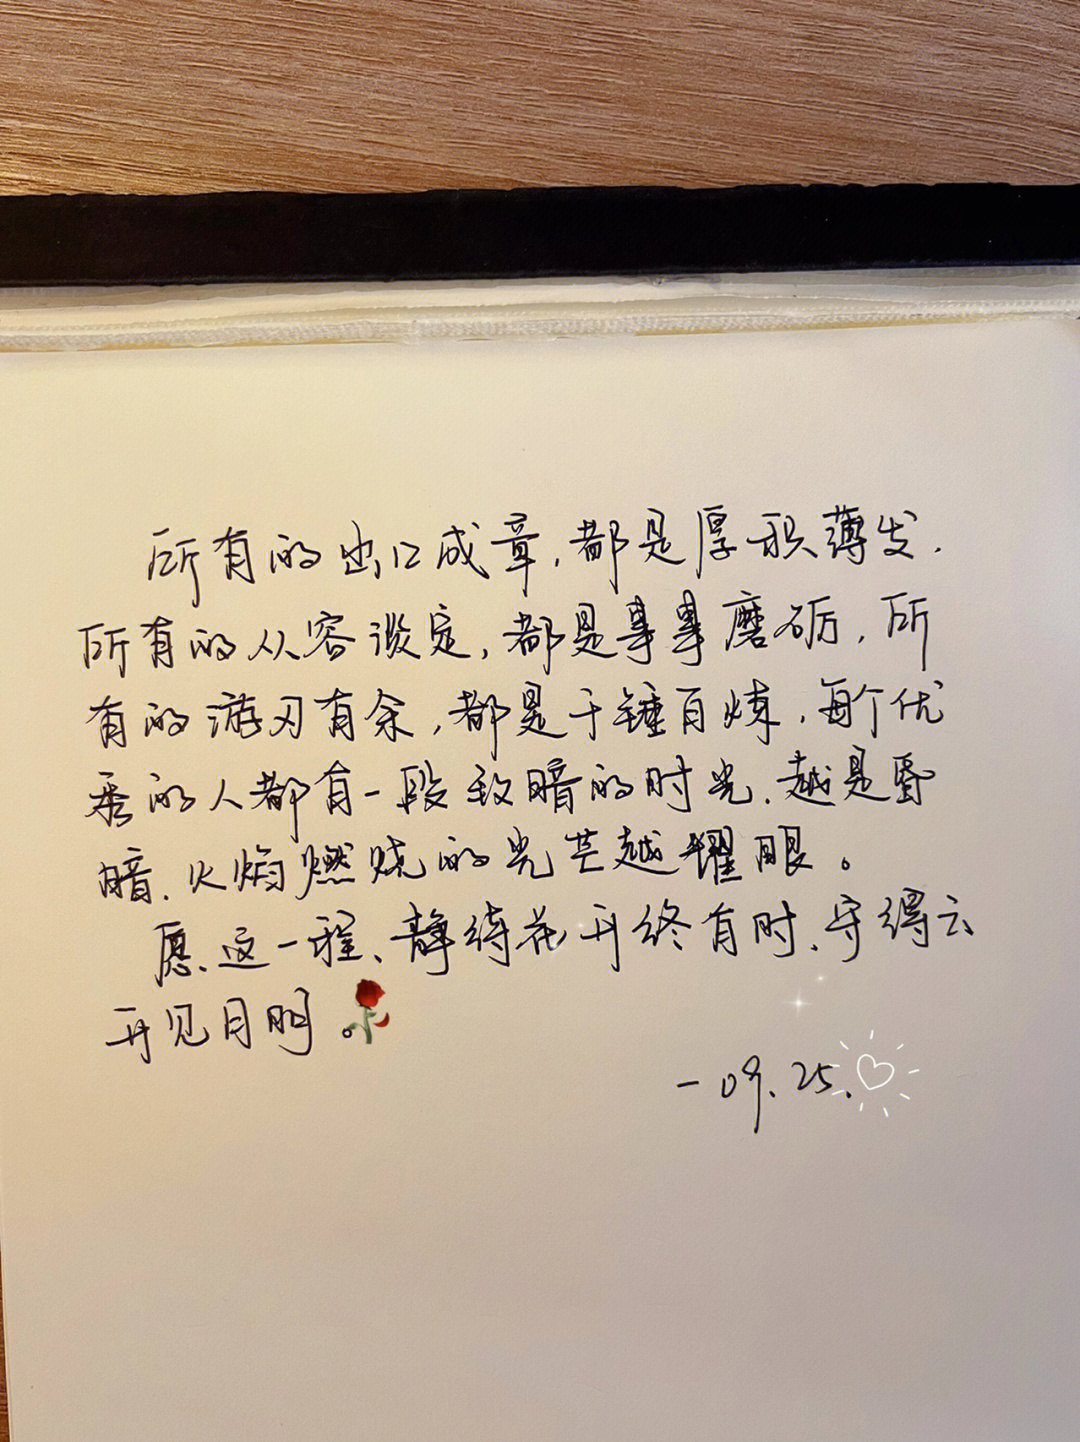 所有的出口成章,都是厚积薄发.
所有的从容淡定,都是事事磨砺,所
有的游刃有余,都是千锤百炼,每个优
秀的人都有一段致暗的时光.越是昏
暗.火焰燃烧的光芒越耀眼。
愿.这一程、静待花开终有时.守得云
开见月明。
-09.25.